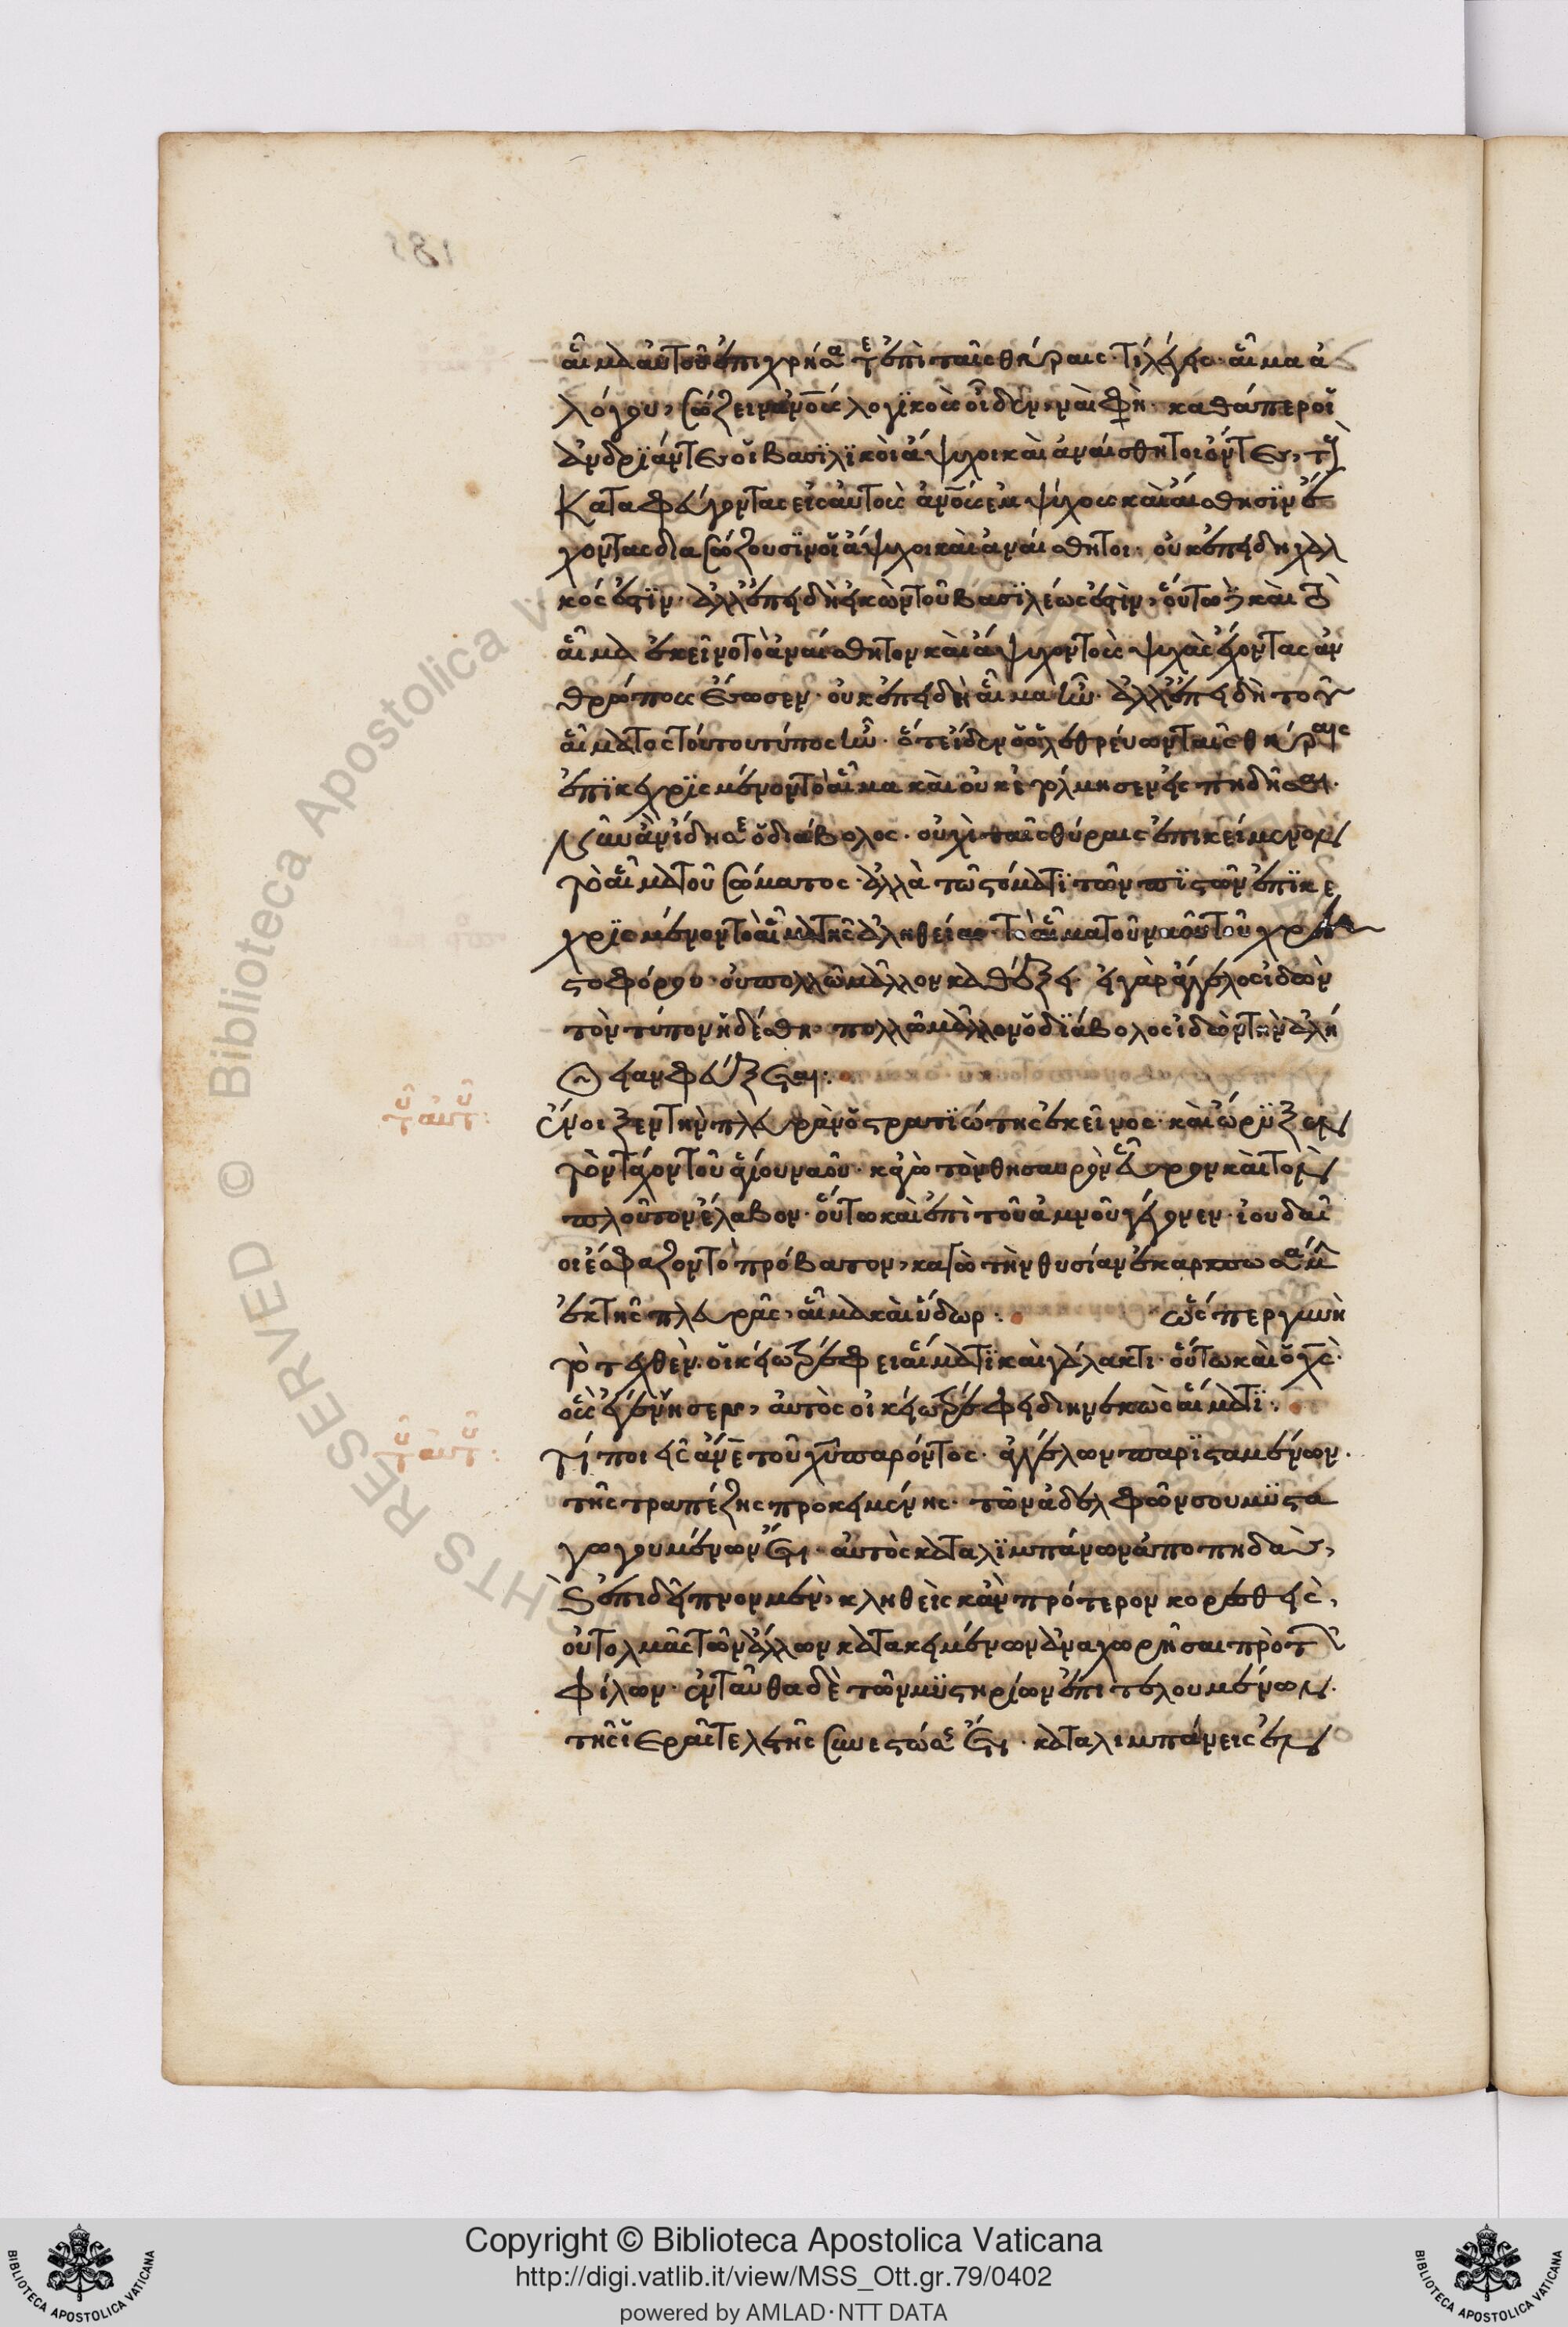 181
αἷμα αὐτοῦ ἐπιχρήσατε ἐπὶ ταῖς θύραις· τί λέγεις· αἷμα ἀ
λόγου, σώζειν ἀνο̅υς λογϊκοὺς οἶδεν, ναὶ φη· καθάπερ οἵ
ἀνδρϊάντες οἵ βασϊλϊκοὶ ἄψυχοι καὶ ἀναίσθητοι ὄντες, τοὺς
καταφεύγοντας εἰς αὐτοὺς ἀνο̅υς ἐμψύχους καὶ αἴσθησϊν ἔ
χοντας διασώζουσϊν οἵ ἄψυχοι καὶ ἀναίσθητοι· οὐκ ἐπειδὴ χαλ
κός ἐστϊν· ἀλλ' ἐπειδὴ εἰκὼν τοῦ βασϊλέως ἐστὶν, οὕτως καὶ τὸ
αἷμα ἐκεῖνο τὸ ἀναίσθητον καὶ ἄψυχον τοὺς ψυχὰς ἔχοντας ἀν
θρώπους ἔσωσεν· οὐκ ἐπειδὴ αἷμα ἦν· ἀλλ' ἐπειδὴ τοῦ
αἵματος τούτου τύπος ἦν· ὅτε ἶδεν ὁ ὀλεθρεύων ταῖς θύραις
ἐπϊκεχρϊσμένον τὸ αἷμα καὶ οὐκ ἐτόλμησεν εἰσπηδῆσαι·
νῦν ἂν ἴδη ὁ διάβολος· οὐχὶ ταῖς θύραις ἐπικείμενον
τὸ αἷμα τοῦ σώματος· ἀλλὰ τῶ στόματϊ τῶν πϊστῶν ἐπϊκε
χρϊσμένον τὸ αἷμα τῆς ἀληθείας· τὸ αἷμα τοῦ ναοῦ τοῦ χρι
στοφόρου· οὐ πολλῶ μᾶλλον καθέξει· εἰ γὰρ ἄγγελος ἰδὼν
τὸν τύπον ἠδέσθη· πολλῶ μᾶλλον ὁ δϊάβολος ἰδὼν τὴν ἀλή
θειαν φεύξεται:
τοῦ αὐτοῦ:
ἔνοιξεν τὴν πλευρὰν ὁ στρατϊώτης ἐκεῖνος· καὶ ὤρϋξεν
τὸν τοῖχον τοῦ ἁγίου ναοῦ· κἀγὼ τὸν θησαυρὸν εὗρον καὶ τὸν
πλοῦτον ἔλαβον· οὕτω καὶ ἐπὶ τοῦ ἀμνοῦ γέγονεν· ἰουδαῖ
οι ἔσφαζον τὸ πρόβατον, κἀγὼ τὴν θυσίαν ἐκαρπωσάμην
ἐκ τῆς πλευρᾶς, αἷμα καὶ ὕδωρ: ὥσπερ γυνὴ
τὸ τεχθὲν οἰκείω τρέφει αἵματϊ καὶ γάλακτι· οὕτω καὶ ὁ χς̅·
οὓς ἐγέννησεν, αὐτὸς οἰκείω τρέφει διηνεκῶς αἵματϊ:
τοῦ αὐτοῦ:
τί ποιεῖς ἄνε̅ τοῦ χυ̅ παρόντος· ἀγγέλων παρϊσταμένων·
τῆς τραπέζης προκειμένης· τῶν ἀδελφῶν σου μϋστα
γωγουμένων ἔτι· αὐτὸς καταλϊμπάνων ἀποπηδᾶς,
καὶ ἐπὶ δεῖπνον μὲν, κληθεὶς κἂν πρότερον κορεσθεὶς,
οὐ τολμᾶς τῶν ἄλλων κατακειμένων ἀναχωρῆσαι πρὸ τῶν
φίλων· ἐνταῦθα δὲ τῶν μϋστηρίων ἐπιτελουμένων·
τῆς ἱερᾶς τελετῆς συνεστώσης ἔτι· καταλιμπάνεις ἐν
Copyright © Biblioteca Apostolica Vaticana
http://digi.vatlib.it/view/MSS_Ott.gr.79/0402
powered by AMLAD·NTT DATA